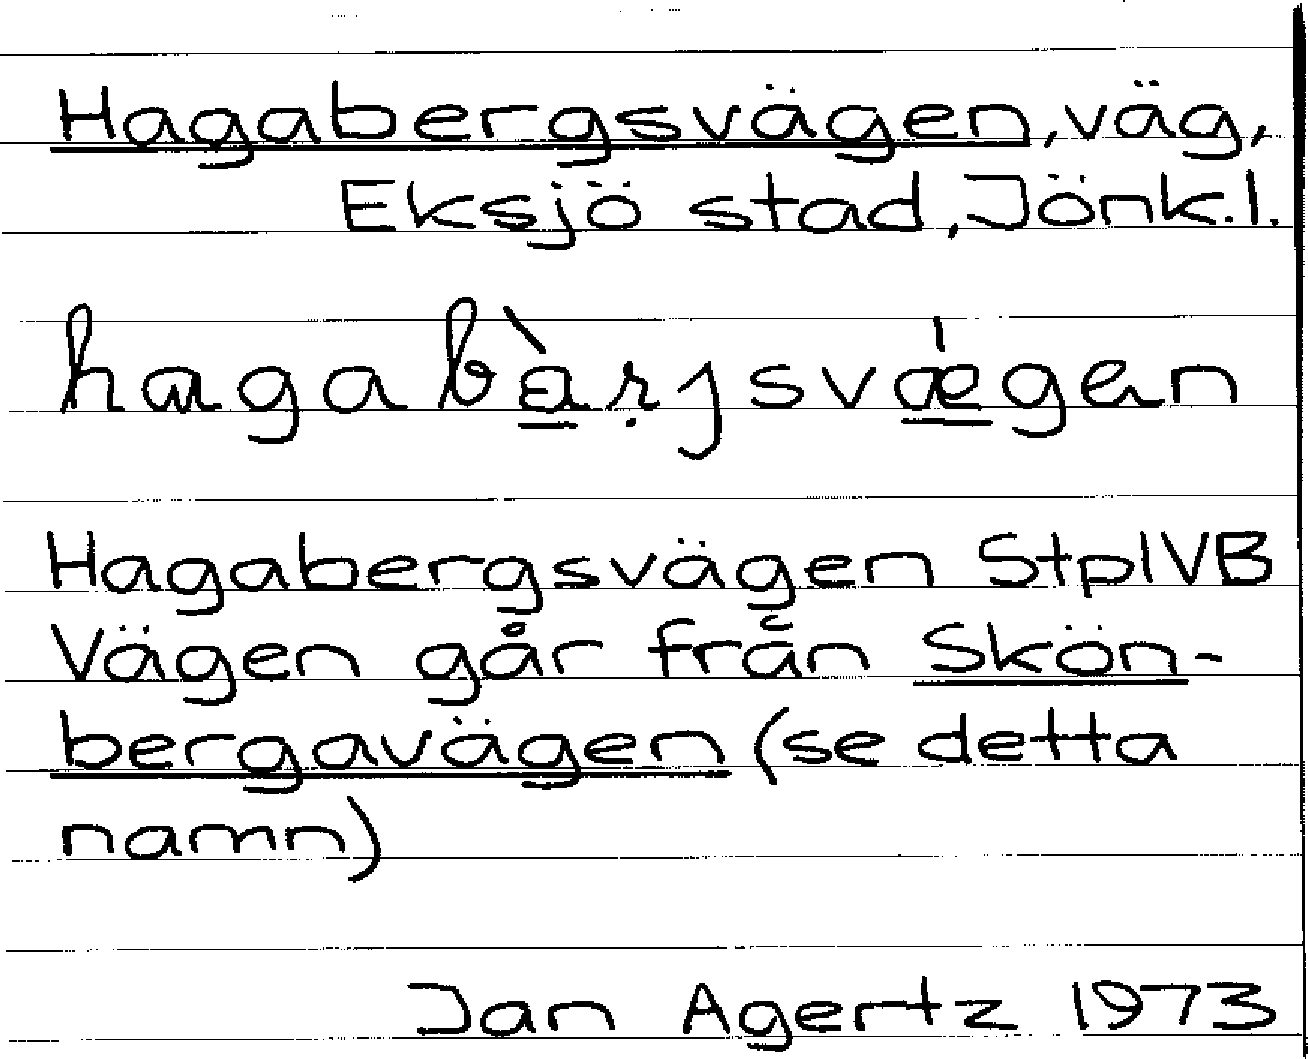 Hagabergsvägen, väg,
Eksjö stad, Jönk.l.
hagabàrjsvǽgen
Hagabergsvägen StplVB
Vägen går från Skön-
bergavägen (se detta
namn)
Jan Agertz 1973